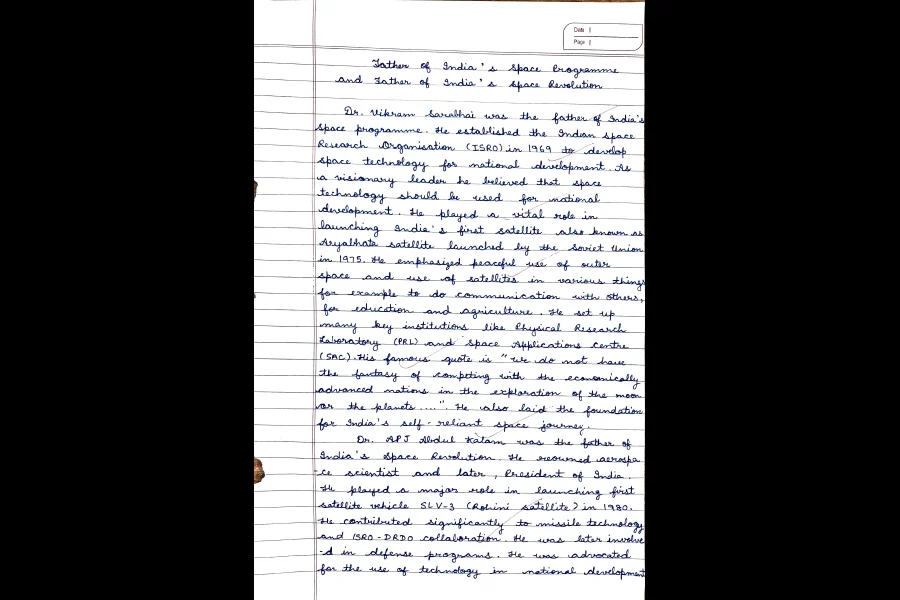 Date
Page
Father of India's Space Programme
and Father of India's Space Revolution
Dr. Vikram Sarabhai was the father of India's
space programme. He established the Indian Space
Research Organisation (ISRO) in 1969 to develop
space technology for national development. As
a visionary leader he believed that space
technology should be used for national
development. He played a vital role in
launching India's first satellite also known as
Aryabhata satellite launched by the Soviet Union
in 1975. He emphasized peaceful use of outer
space and use of satellites in various things
for example to do communication with others,
for education and agriculture. He set up
many key institutions like Physical Research
Laboratory (PRL) and Space Applications Centre
(SAC). His famous quote is "We do not have
the fantasy of competing with the economically
advanced nations in the exploration of the moon
or the planets ....". He also laid the foundation
for India's self-reliant space journey.
Dr. APJ Abdul Kalam was the father of
India's Space Revolution. He reowned aerospa
-ce scientist and later, President of India.
He played a major role in launching first
satellite vehicle SLV-3 (Rohini satellite) in 1980.
He contributed significantly to missile technology
and ISRO-DRDO collaboration. He was later involve
-d in defense programs. He was advocated
for the use of technology in national development